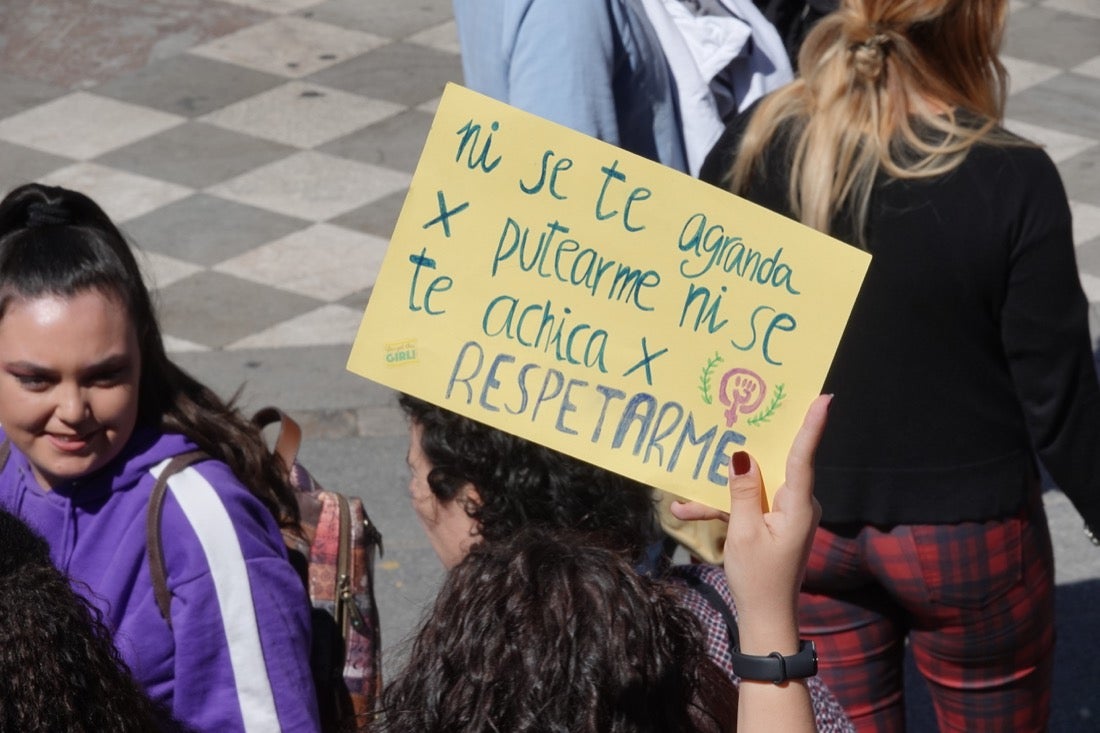 ni se te agranda
x putearme ni se
te achica x
RESPETARME
GIRL!